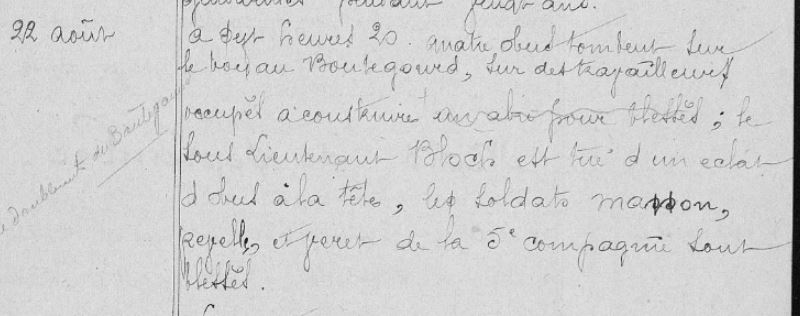 pendant vingt ans.
22 août
a sept heures 20. quatre obus tombent sur
le boyau Boutegourd, sur des travailleurs
occupés a construire un abri pour blessés ; le
Sous Lieutenant Bloch est tué d'un eclat
d obus à la tête, les soldats masson,
et peret de la 5e compagnie sont
blessés.